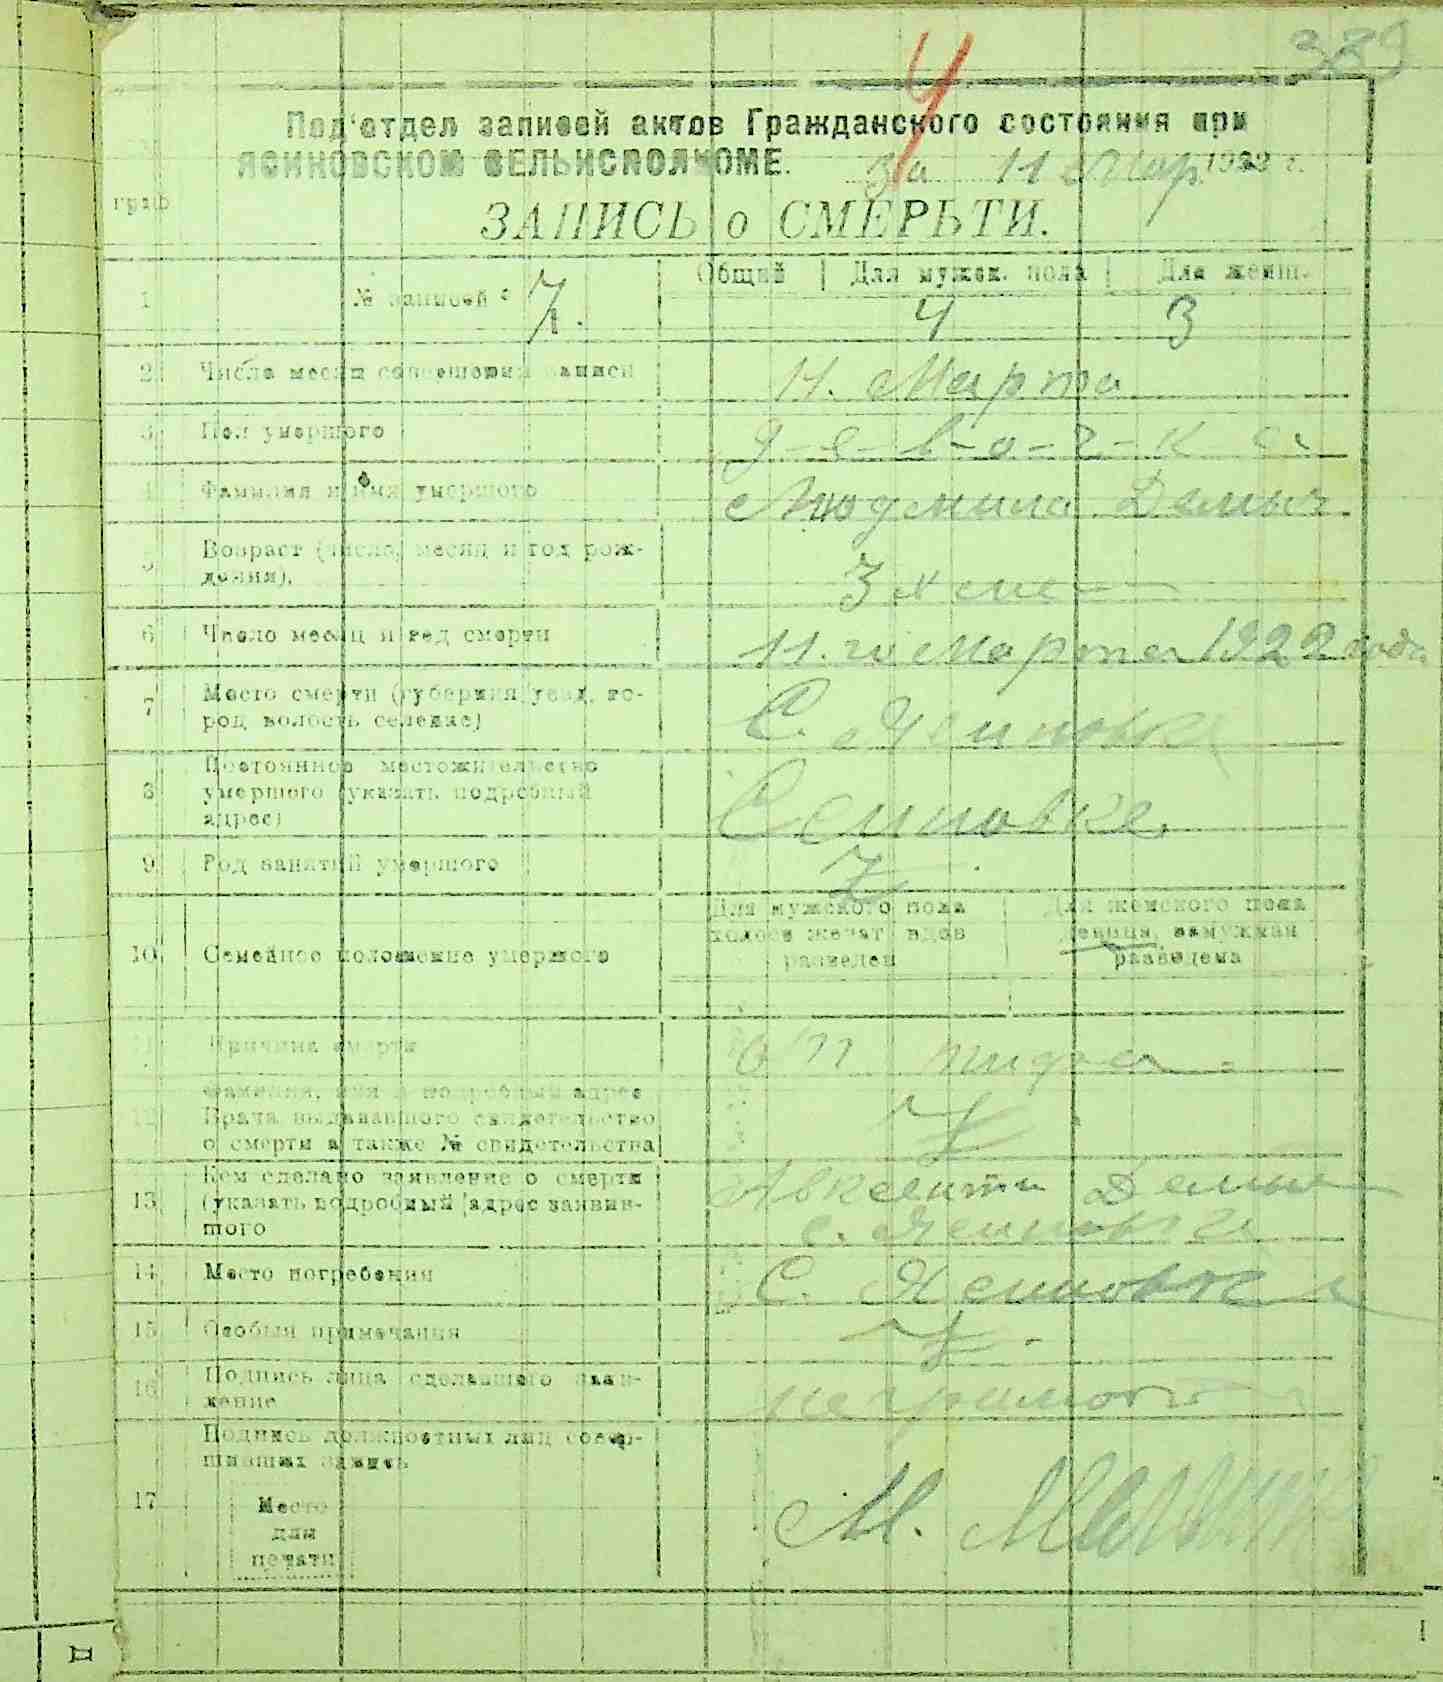 389
4
Под'отдел записей актов Гражданского состояния при
ЯСИНОВСКОМ СЕЛЬИСПОЛКОМЕ. за 11 Мар. 1922 г.
граф
ЗАПИСЬ о СМЕРЬТИ.
1 № записей 7. Общий Для мужск. пола Для женщ.
4 3
2 Число месяц совершения записи 11. Марта
3 Пол умершого д-е-в-о-ч-к а
4 Фамилия и имя умершого Людмила Демыч
5 Возраст (число, месяц и год рож-
дения). 3 х мес
6 Число месяц и год смерти 11. го Марта 1922 года
7 Место смерти (губерния, уезд, го-
род волость селение) С. Ясиновка
8 Постоянное местожительство
умершого (указать подробный
адрес) Ясиновке
9 Род занятий умершого
10 Семейное положение умершого
Для мужского пола
холост женат вдов
разведен
Для женского пола
девица, замужняя
разведена
11 Причина смерти от тифа
12 Фамилия, имя и подробный адрес
Врача выдававшого свидетельство
о смерти а также № свидетельства
13 Кем сделано заявление о смерти
(указать подробный адрес заявив-
шого Авксентий
с. Ясиновка
14 Место погребения С. Ясиновка
15 Особыя примечания
16 Подпись лица сделавшего заяв-
ление неграмотный
17 Подпись должностных лиц совер-
шивших запись
М.
Место
для
печати
Д